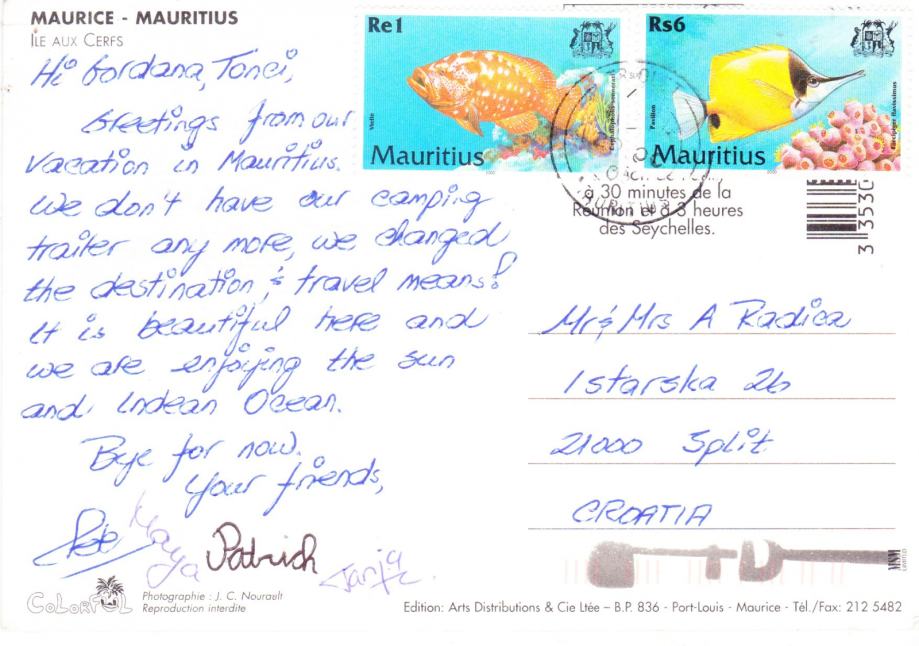 MAURICE - MAURITIUS
ÎLE AUX CERFS
Hi Gordana, Tonci,
Greetings from our
vacation in Mauritius.
We don't have our camping
trailer any more, we changed
the destination & travel means!
It is beautiful here and
we are enjoying the sun
and Indean Ocean.
Bye for now.
Your friends,
Maya Patrich Tanja
COLORFUL
Photographie : J. C. Nourault
Reproduction interdite
Re1
Vieille
Mauritius
Rs6
Pavillon
Mauritius
à 30 minutes de la
Réunion et à 3 heures
des Seychelles.
3 3530
Mr & Mrs A Radica
Istarska 2b
21000 Split
CROATIA
MSM
LIMITED
Edition: Arts Distributions & Cie Ltée – B.P. 836 - Port-Louis - Maurice - Tél./Fax: 212 5482